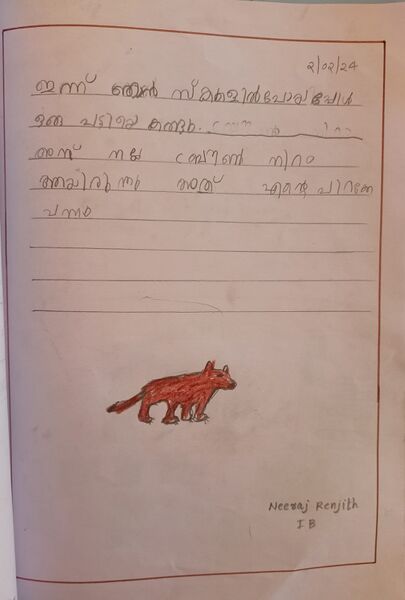 2/02/24
ഇന്ന് ഞാൻ സ്കൂളിൽ പോയപ്പോൾ
ഒരു പട്ടിയെ കണ്ടു.
അത് നല്ല ബ്രൗൺ നിറം
ആയിരുന്നു അത് എന്റെ പിറകേ
വന്നു
Neeraj Renjith
I B